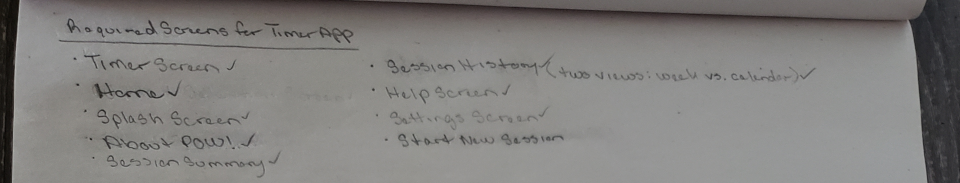 Required Screens for Timer App
· Timer Screen ✓
· Home ✓
· Splash Screen ✓
· About POW! ✓
· Session Summary ✓
· Session History (two views: week vs. calender) ✓
· Help Screen ✓
· Settings Screen ✓
· Start New Session